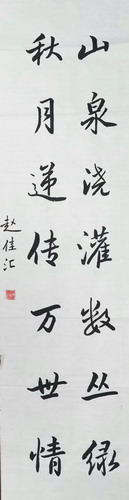 山泉浇灌数丛绿
秋月递传万世情
赵佳汇